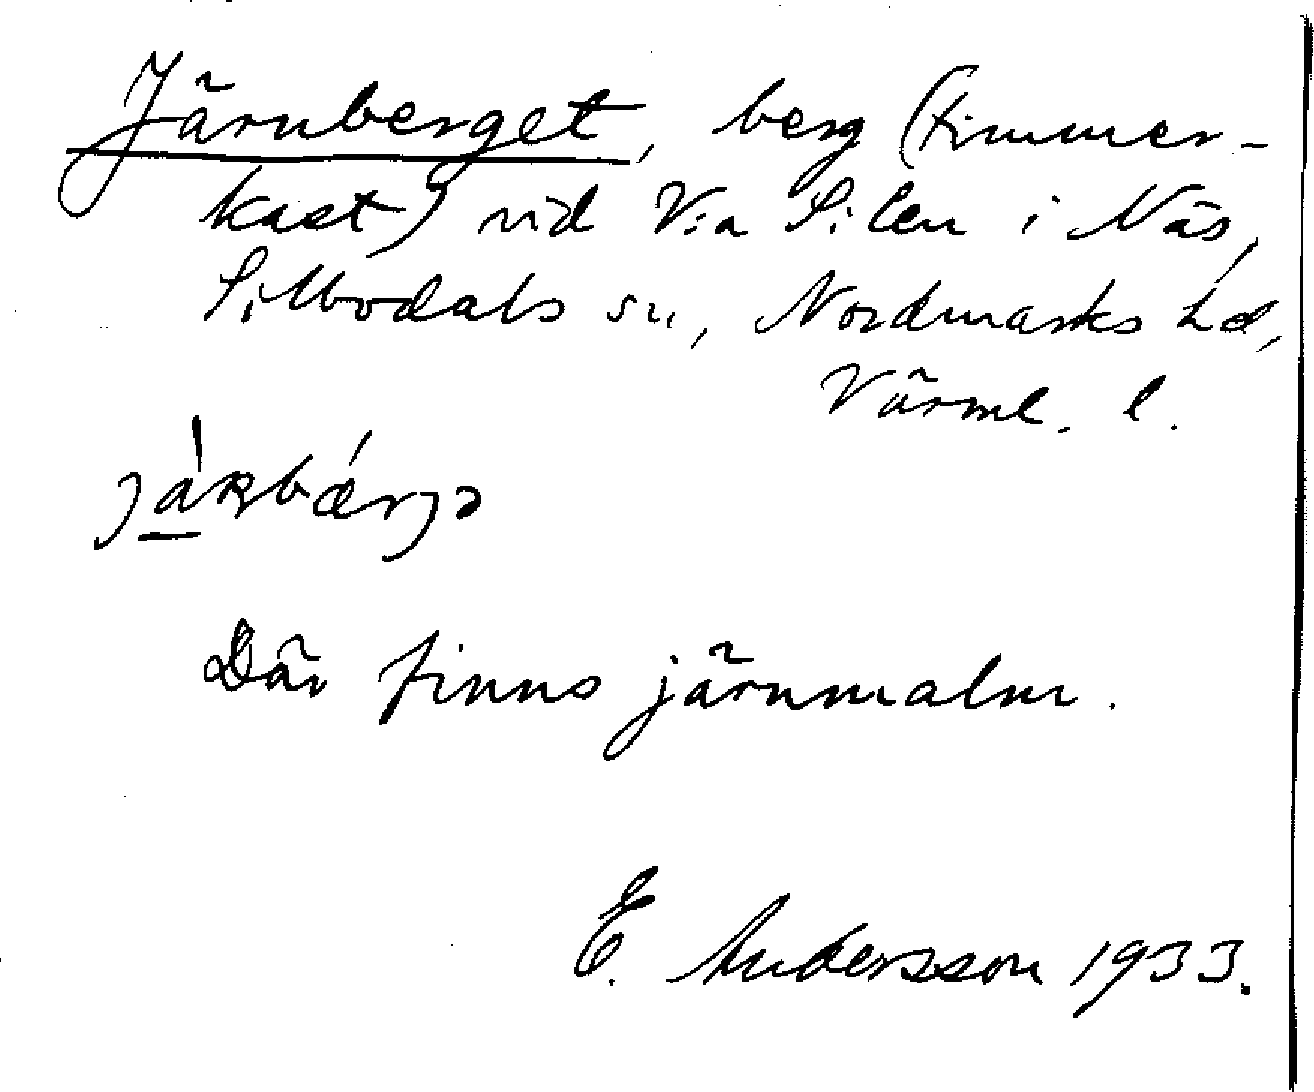 Järnberget, berg (timmer-
kast) vid V:a Silen i Näs,
Sillbodals sn, Nordmarks hd,
Värml. l.
Där finns järnmalm.
E. Andersson 1933.